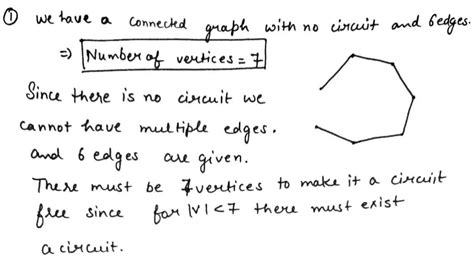 ① We have a connected graph with no circuit and 6 edges.
⇒ Number of vertices = 7
Since there is no circuit we
cannot have multiple edges.
and 6 edges are given.
There must be 7 vertices to make it a circuit
free since for |V| < 7 there must exist
a circuit.